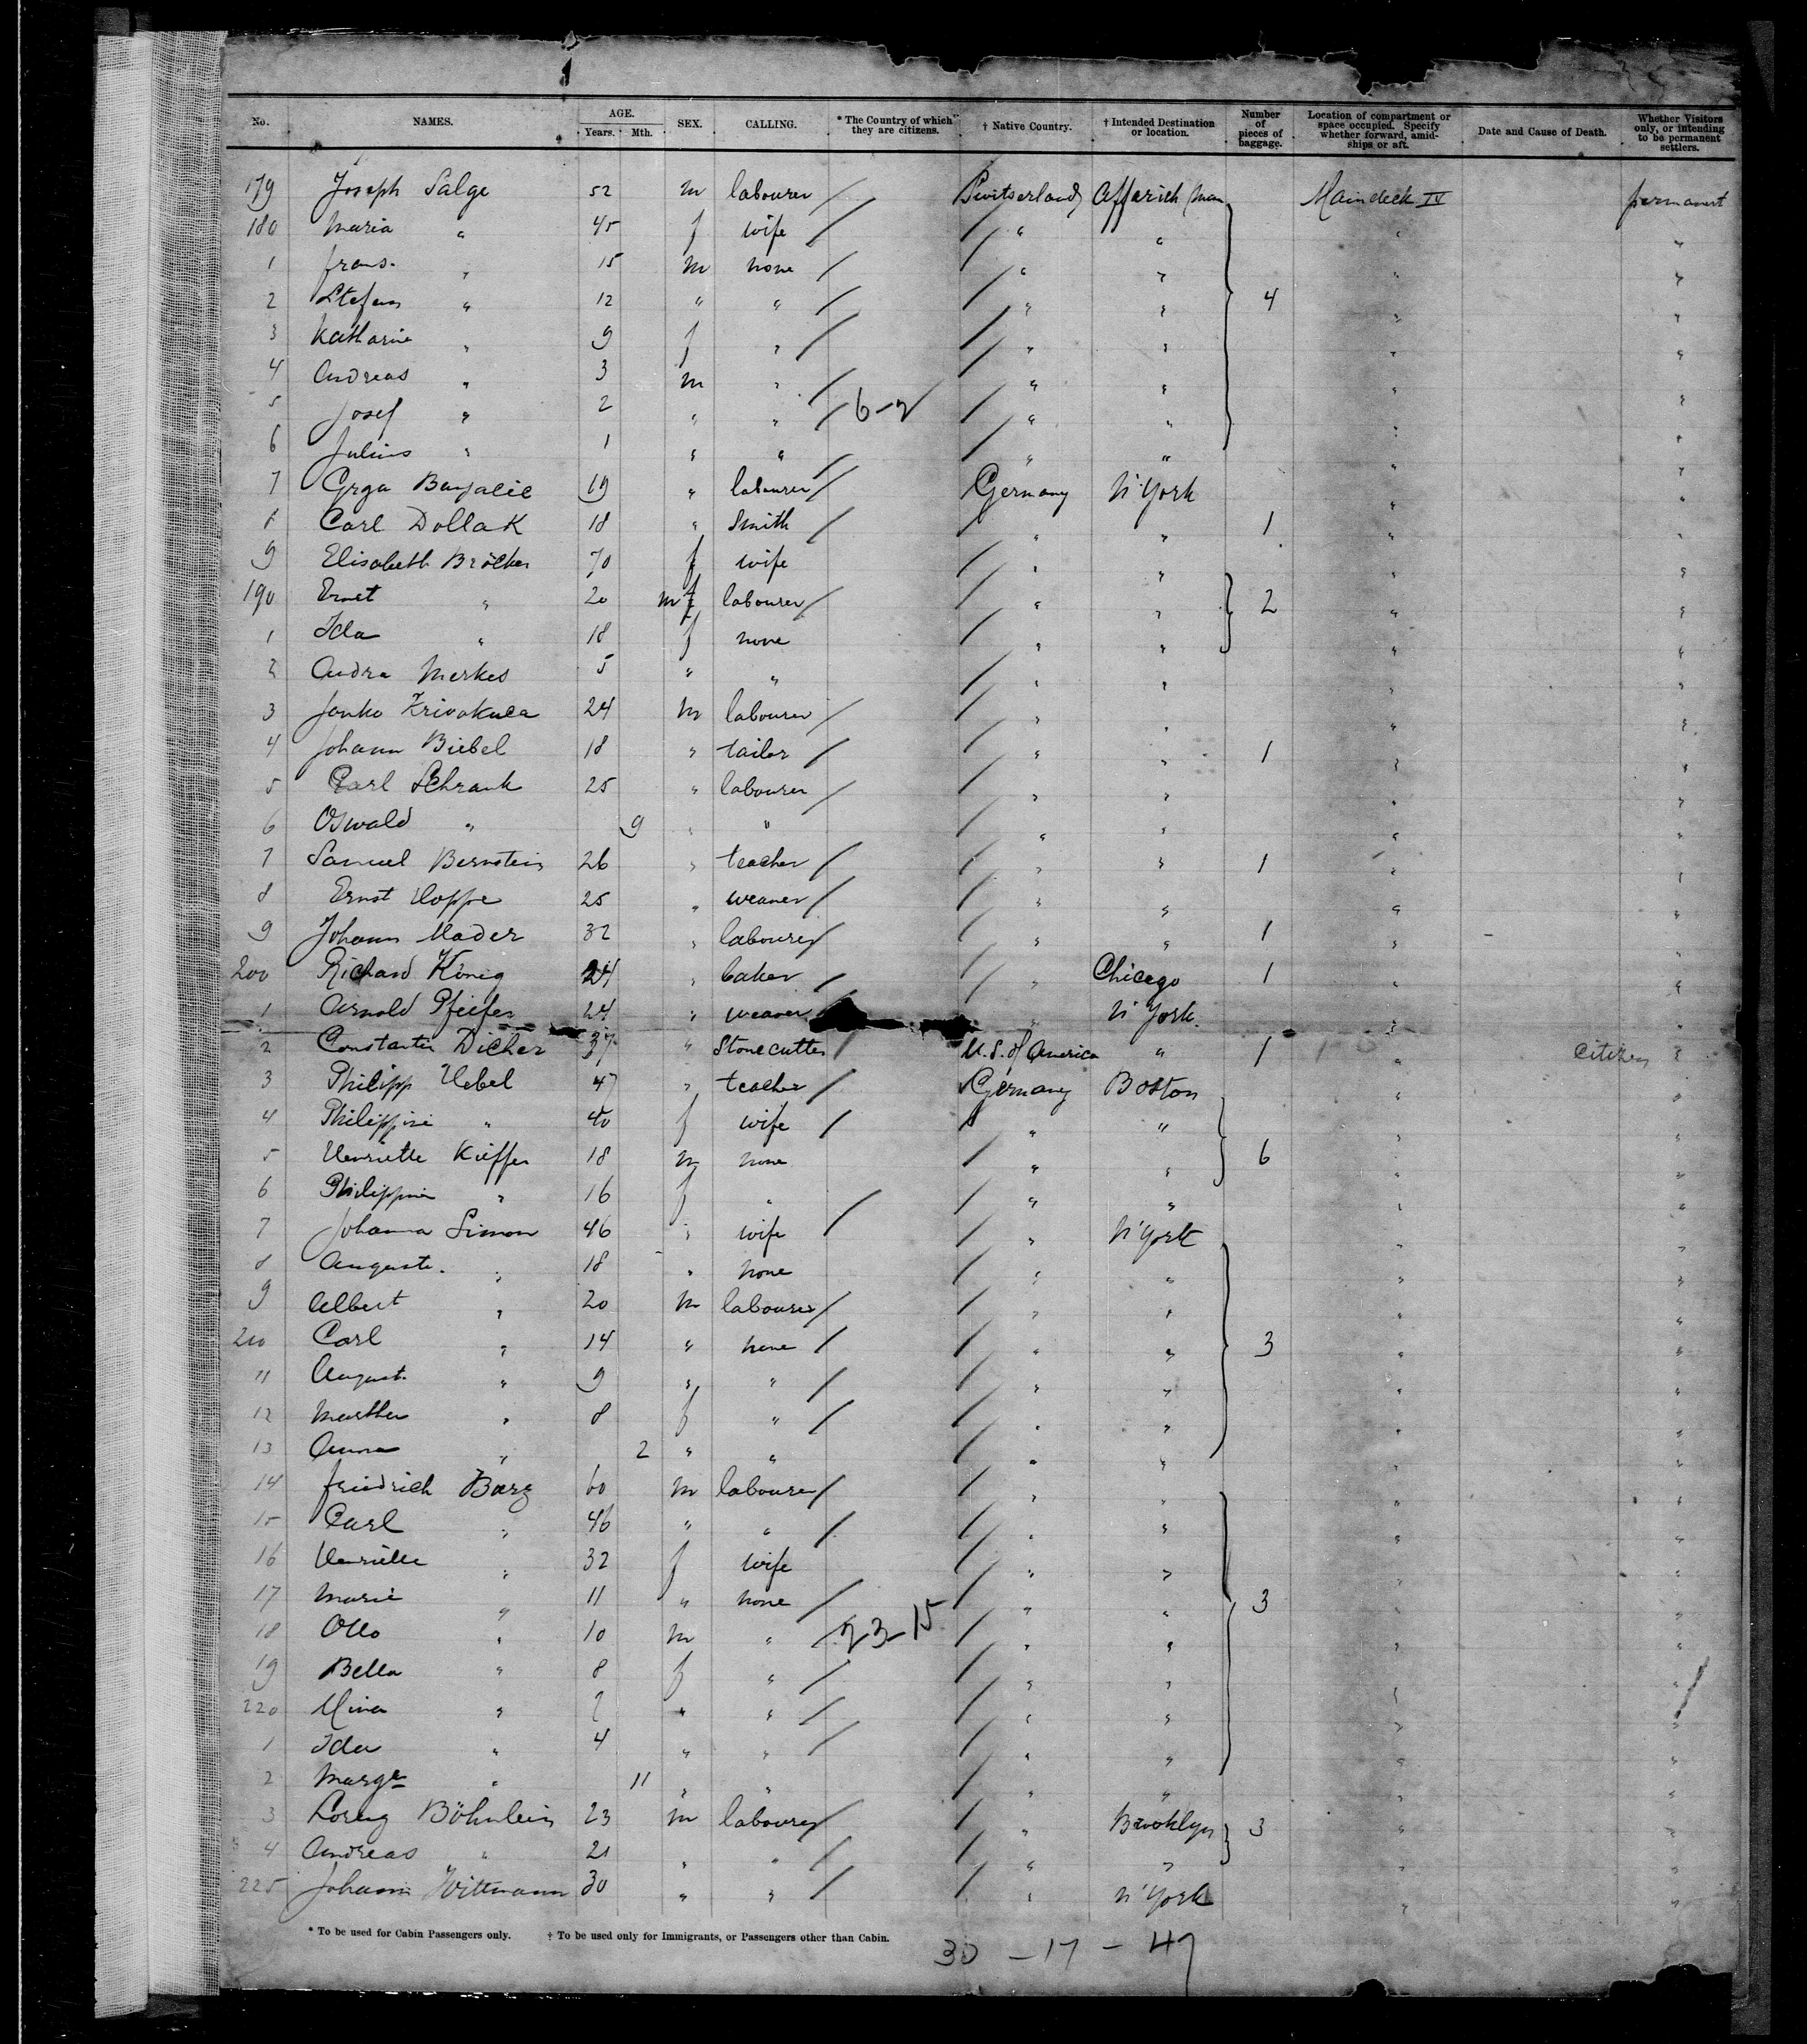 No. NAMES. AGE. Years. Mth. SEX. CALLING. * The Country of which they are citizens. † Native Country. † Intended Destination or location. Number of pieces of baggage. Location of compartment or space occupied. Specify whether forward, amidships or aft. Date and Cause of Death. Whether Visitors only, or intending to be permanent settlers.
179 Joseph Salge 52 m labourer / Switserland Main deck IV permanent
180 Maria " 45 f wife / " " " "
1 frans. " 15 m none / " " " "
2 Stefan " 12 " " / " " 4 " "
3 Katharine " 9 f " / " " " "
4 Andreas " 3 m " / " " " "
5 Josef " 2 " " / 6-2 " " " "
6 Julius " 1 " " / " " " "
7 Grga 19 " labourer / Germany N'York " "
8 Carl Dollak 18 " Smith / " " 1 " "
9 Elisabeth Bröcker 70 f wife " " " "
190 Ernst " 20 m labourer / " " 2 " "
1 Ida " 18 f none " " " "
2 Andra Merkes 5 " " " " " "
3 Janko 24 m labourer / " " " "
4 Johann Biebel 18 " tailor / " " 1 " "
5 Carl Schrank 25 " labourer / " " " "
6 Oswald " 9 " " " " " "
7 Samuel Bernstein 26 " teacher / " " 1 " "
8 Ernst Hoppe 25 " weaver / " " " "
9 Johann Mader 32 " labourer / " " 1 " "
200 Richard König 24 " baker / " Chicago 1 " "
1 Arnold Pfeifer 24 " weaver " N'York. " "
2 Constantin Dicher 37 " Stonecutter / U.S. of America " 1 " citizen "
3 Philipp Uebel 47 " teacher / Germany Boston " "
4 Philippine " 40 f wife / " " " "
5 Henriette Kieffer 18 m none " " 6 " "
6 Philippine " 16 f " / " " " "
7 Johanna Simon 46 " wife " N'York " "
8 Auguste. " 18 " none " " " "
9 Albert " 20 m labourer / " " " "
210 Carl " 14 " none / " " 3 " "
11 August. " 9 " " / " " " "
12 Martha " 8 f " / " " " "
13 Anna " 2 " " " " " "
14 friedrich Barz 60 m labourer / " " " "
15 Carl " 46 " " / " " " "
16 Henriette " 32 f wife " " " "
17 Marie " 11 " none / " " 3 " "
18 Otto " 10 m " / 23-15 " " " "
19 Bella " 8 f " / " " " "
220 Mina " " " / " " " "
1 Ida " 4 " " / " " " "
2 Marge " 11 " " " " " "
3 Lorenz Böhnlein 23 m labourer / " Brooklyn 3 " "
4 Andreas " 21 " " / " " " "
225 Johann Wittmann 30 " " / " N'York " "
* To be used for Cabin Passengers only. † To be used only for Immigrants, or Passengers other than Cabin.
30 - 17 - 47